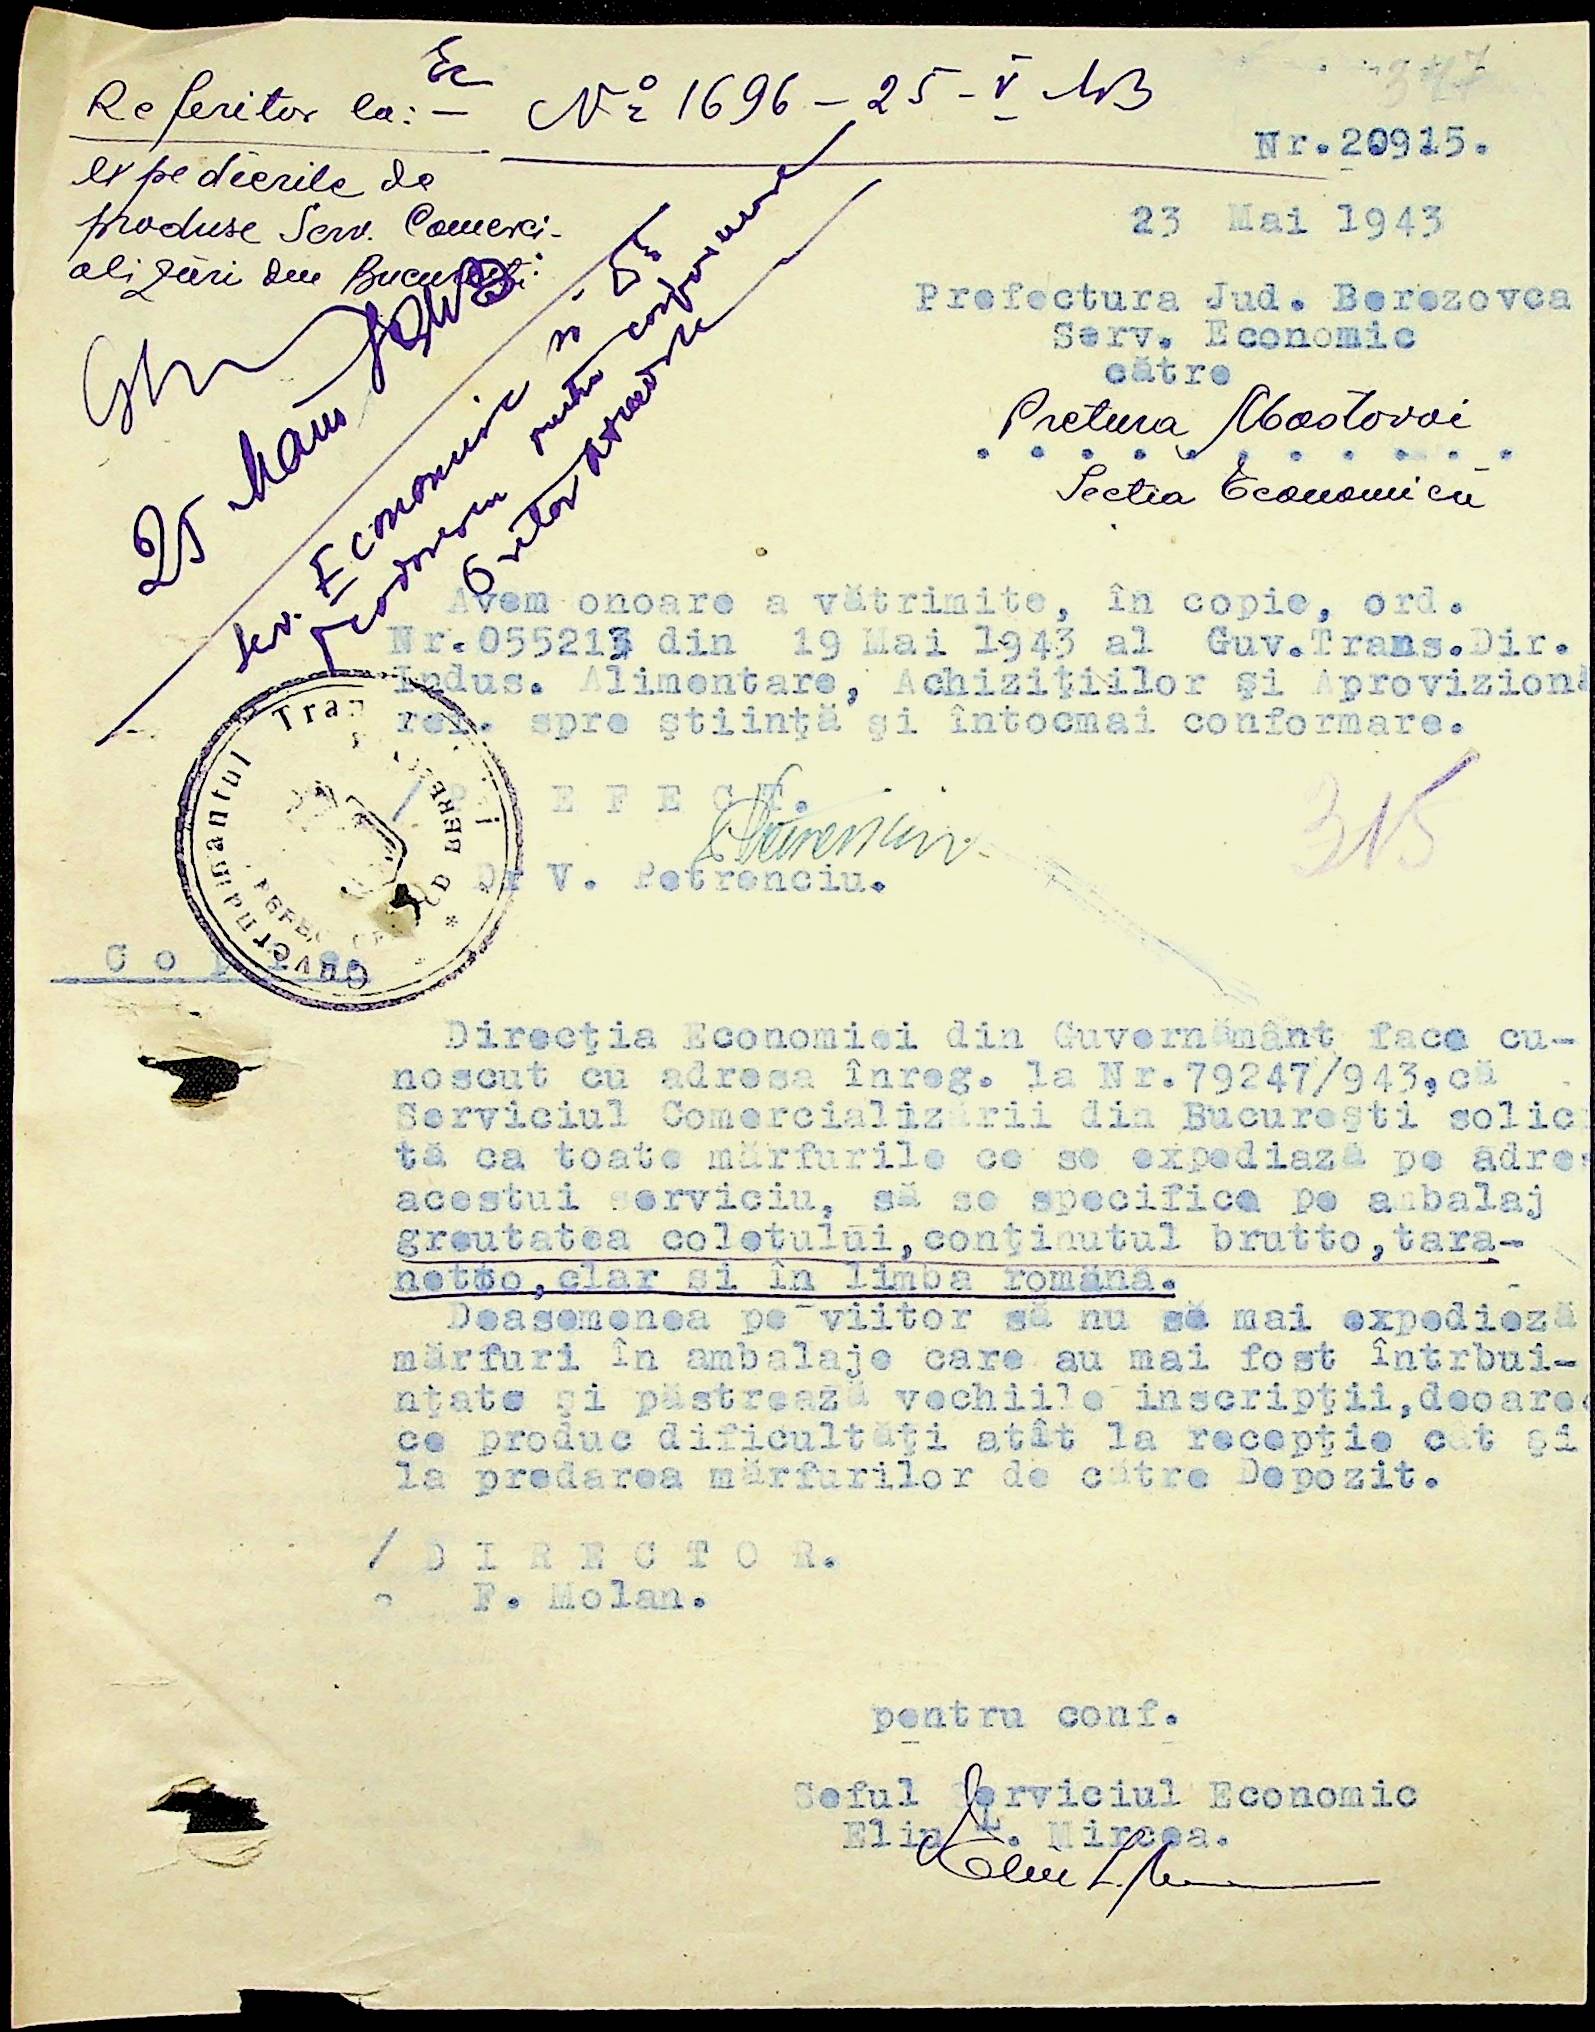 Ec
Referitor la: — No 1696 – 25 – V 943
347
Nr.20915.
expedierile de
produse Serv. Comerci-
alizări din București
23 Mai 1943
Prefectura Jud. Berezovca
Serv. Economic
către
Pretura Mostovoi
Secția Economică
25 Maiu 943
Serv. Economic
pentru conformare
Avem onoare a vătrimite, în copie, ord.
Nr.055213 din 19 Mai 1943 al Guv.Trans.Dir.
Indus. Alimentare, Achiziţiilor şi Aprovizionă
rei. spre ştiinţă şi întocmai conformare.
/P R E F E C T.
315
Dr V. Petrenciu.
Guvernământul Tran
PREFECTURA JUD BERE
C o p i e.
Direcţia Economiei din Guvernământ face cu-
noscut cu adresa înreg. la Nr.79247/943,că
Serviciul Comercializării din Bucureşti solici
tă ca toate mărfurile ce se expediază pe adres
acestui serviciu, să se specifice pe ambalaj
greutatea coletului,conţinutul brutto,tara-
netto,clar si în limba română.
Deasemenea pe viitor să nu să mai expedieză
mărfuri în ambalaje care au mai fost întrbui-
nţate şi păstrează vechiile inscripţii,deoare
ce produc dificultăţi atât la recepţie cât şi
la predarea mărfurilor de către Depozit.
/ D I R E C T O R.
F. Molan.
pentru conf.
Seful Serviciul Economic
Elin L. Mircea.